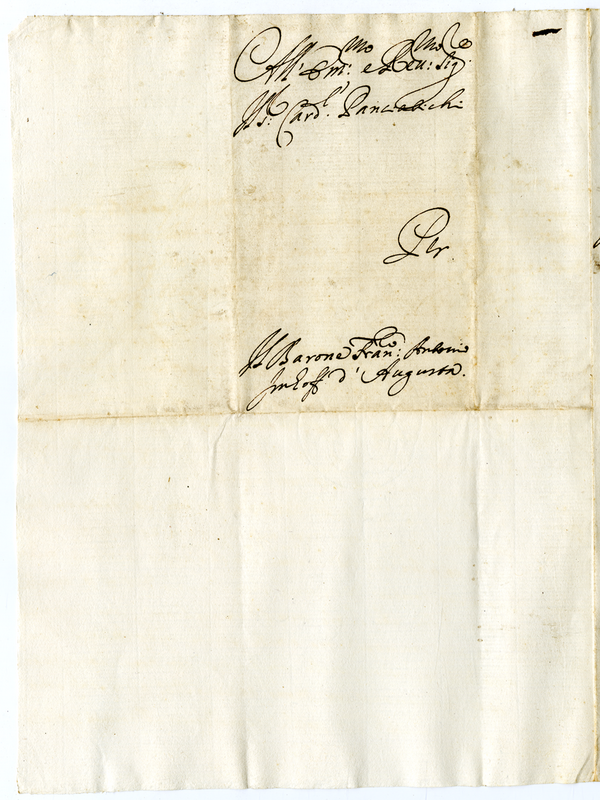 All' Em:mo e Reu:mo Sig:re
Il S:r Card.l Panciatichi
Per
Il Barone Fran:co Antonio
Imhoff d' Augusta.